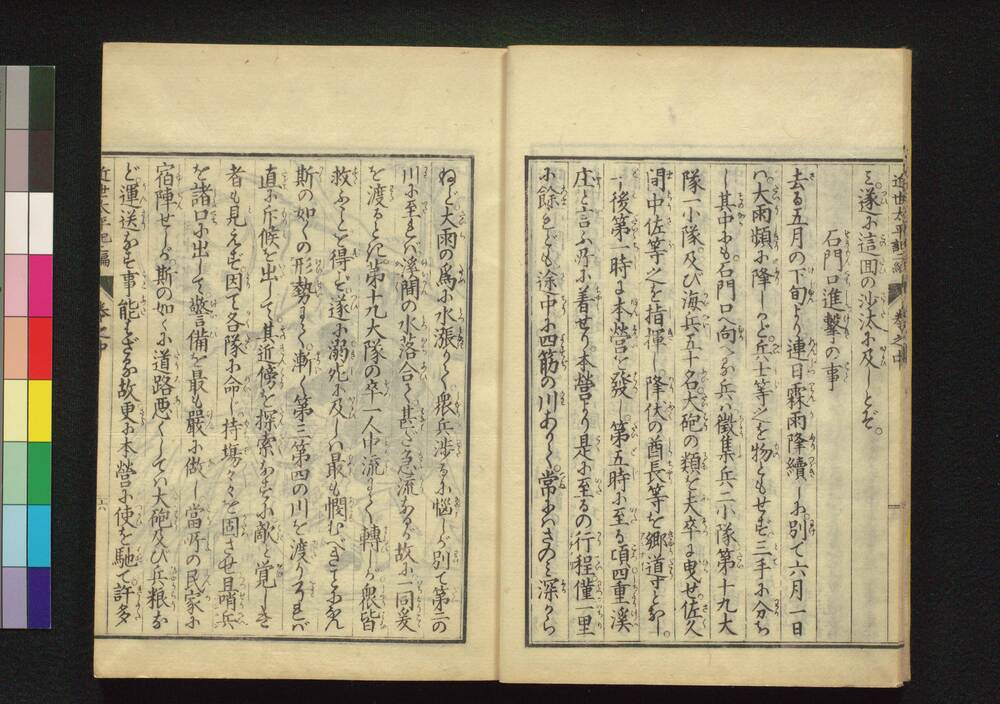 近世太平記二編 巻之中
ミ遂に這回の沙汰に及しとぞ。
石門口進撃の事
去る五月の下旬より連日霖雨降續しに別て六月一日
ハ大雨頻に降しかど兵士等之を物ともせず三手に分ち
し其中にも石門口へ向へる兵ハ徴集兵二小隊第十九大
隊一小隊及び海兵五十名大砲の類を夫卒に曳せ佐久
間中佐等之を指揮し降伏の酋長等を郷導となし。
午後第一時に本營を發し。第五時に至る頃四重溪
庄と言ふ所に着せり。本營より是に至るの行程僅一里
に餘れども途中に四筋の川ありて。常にハさのミ深から
ねど大雨の爲に水漲りて衆兵渉るに悩しが別て第二の
川に至れバ溪間の水落合て甚だ急流なるが故に一同爰
を渡るときに第十九大隊の卒一人中流にて轉しか衆皆
救ふことを得ず遂に溺死に及しハ最も憫むべきことになん
斯の如くの形勢にて漸く第三第四の川を渡りけれバ
直に斥候を出して其近傍を探索なすに敵と覚しき
者も見えず因て各隊に命し持塲々々を固させ且哨兵
を諸口に出して警備を最も嚴に做し當所の民家に
宿陣せしが斯の如くに道路悪くしてハ大砲及び兵粮な
ど運送なす事能ハざる故更に本營に使を馳て許多
近世太平記二編 巻之中 六